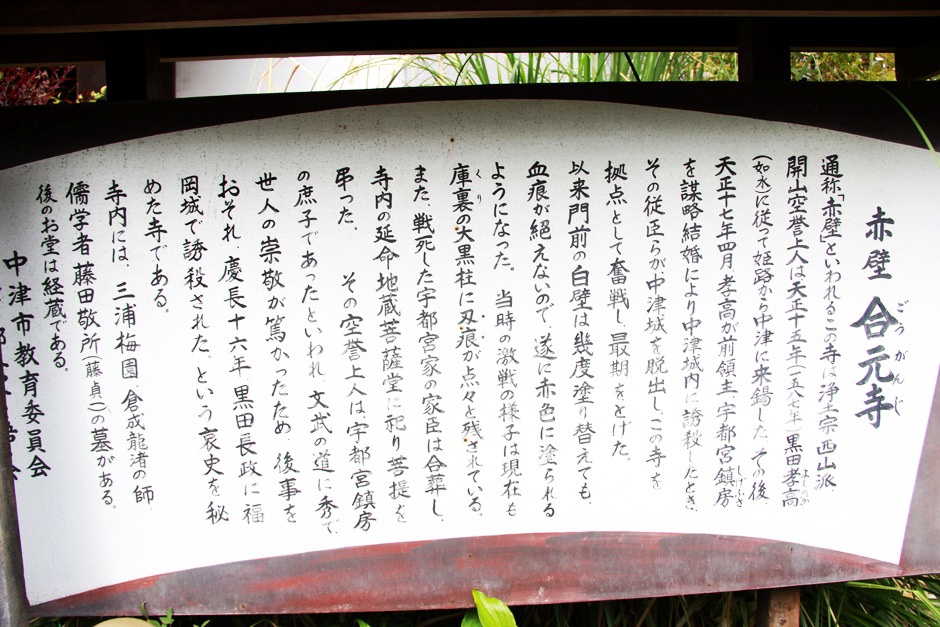 赤壁 合元寺
ごうがんじ
通称「赤壁」といわれるこの寺は浄土宗西山派、
開山空誉上人は天正十五年(一五八七年)黒田孝高
よしたか
(如水)に従って姫路から中津に来錫した。その後、
天正十七年四月孝高が前領主宇都宮鎮房
しげふさ
を謀略結婚により中津城内に誘殺したとき、
その従臣らが中津城を脱出し、この寺を
拠点として奮戦し最期をとげた。
以来門前の白壁は幾度塗り替えても、
血痕が絶えないので、遂に赤色に塗られる
ようになった。当時の激戦の様子は現在も
庫裏の大黒柱に刃痕が点々と残されている。
くり
また、戦死した宇都宮家の家臣は合葬し、
寺内の延命地蔵菩薩堂に祀り菩提を
弔った。 その空誉上人は、宇都宮鎮房
の庶子であったといわれ、文武の道に秀で、
世人の崇敬が篤かったため、後事を
おそれ、慶長十六年、黒田長政に福
岡城で誘殺された。という哀史を秘
めた寺である。
寺内には、三浦梅園、倉成龍渚の師、
儒学者藤田敬所(藤貞一)の墓がある。
後のお堂は経蔵である。
中津市教育委員会